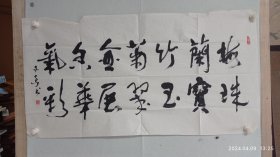 梅蘭竹菊香氣
珠寶玉翠展華彩
2024.04.09 13:25